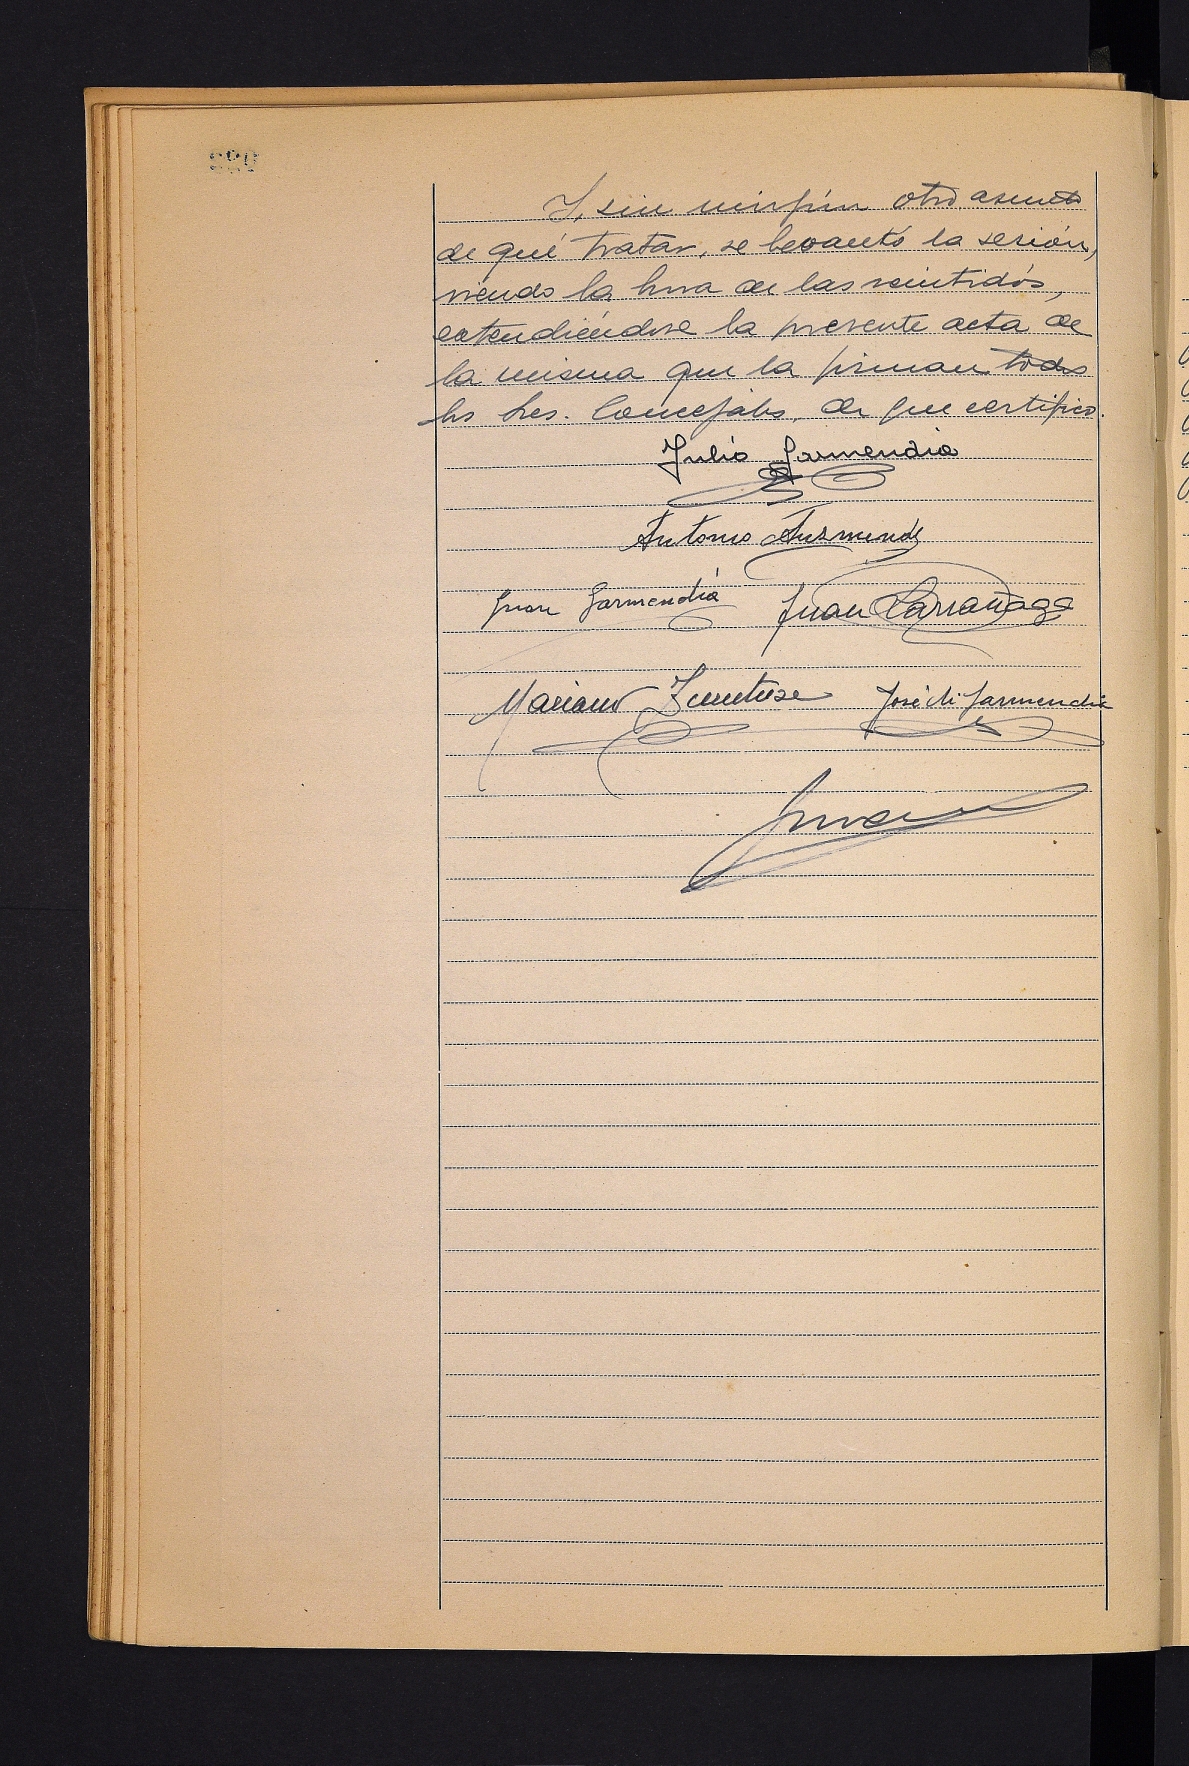 Y, sin ningún otro asunto
de qué tratar, se levantó la sesión,
siendo la hora de las veintidós,
extendiéndose la presente acta de
la misma que la firman todos
los Sres. Concejales, de que certifico.
Julio Garmendia
Antonio Auzmendi
Juan Garmendia Juan Larrañaga
Mariano José M. Garmendia